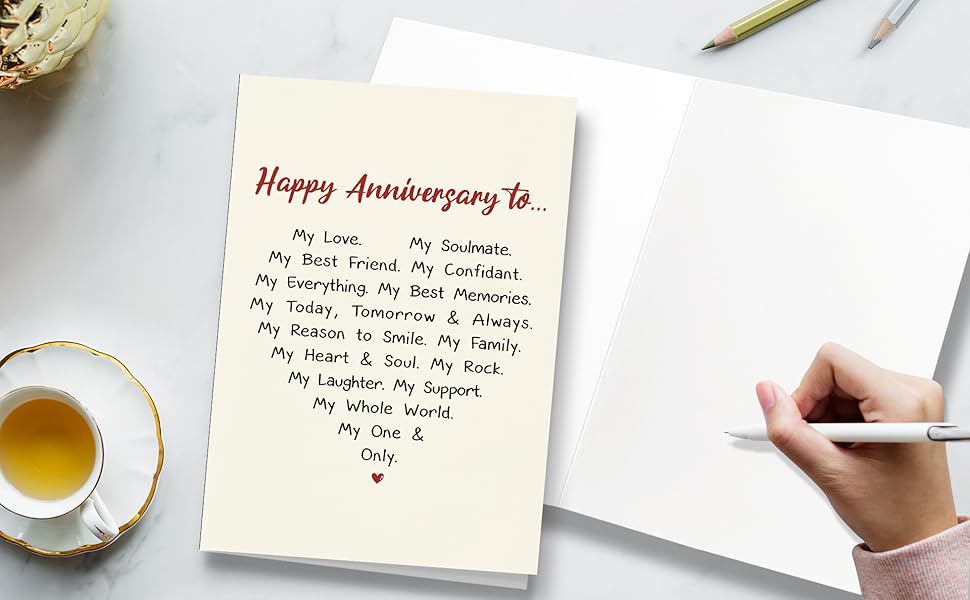 Happy Anniversary to...
My Love. My Soulmate.
My Best Friend. My Confidant.
My Everything. My Best Memories.
My Today, Tomorrow & Always.
My Reason to Smile. My Family.
My Heart & Soul. My Rock.
My Laughter. My Support.
My Whole World.
My One &
Only.